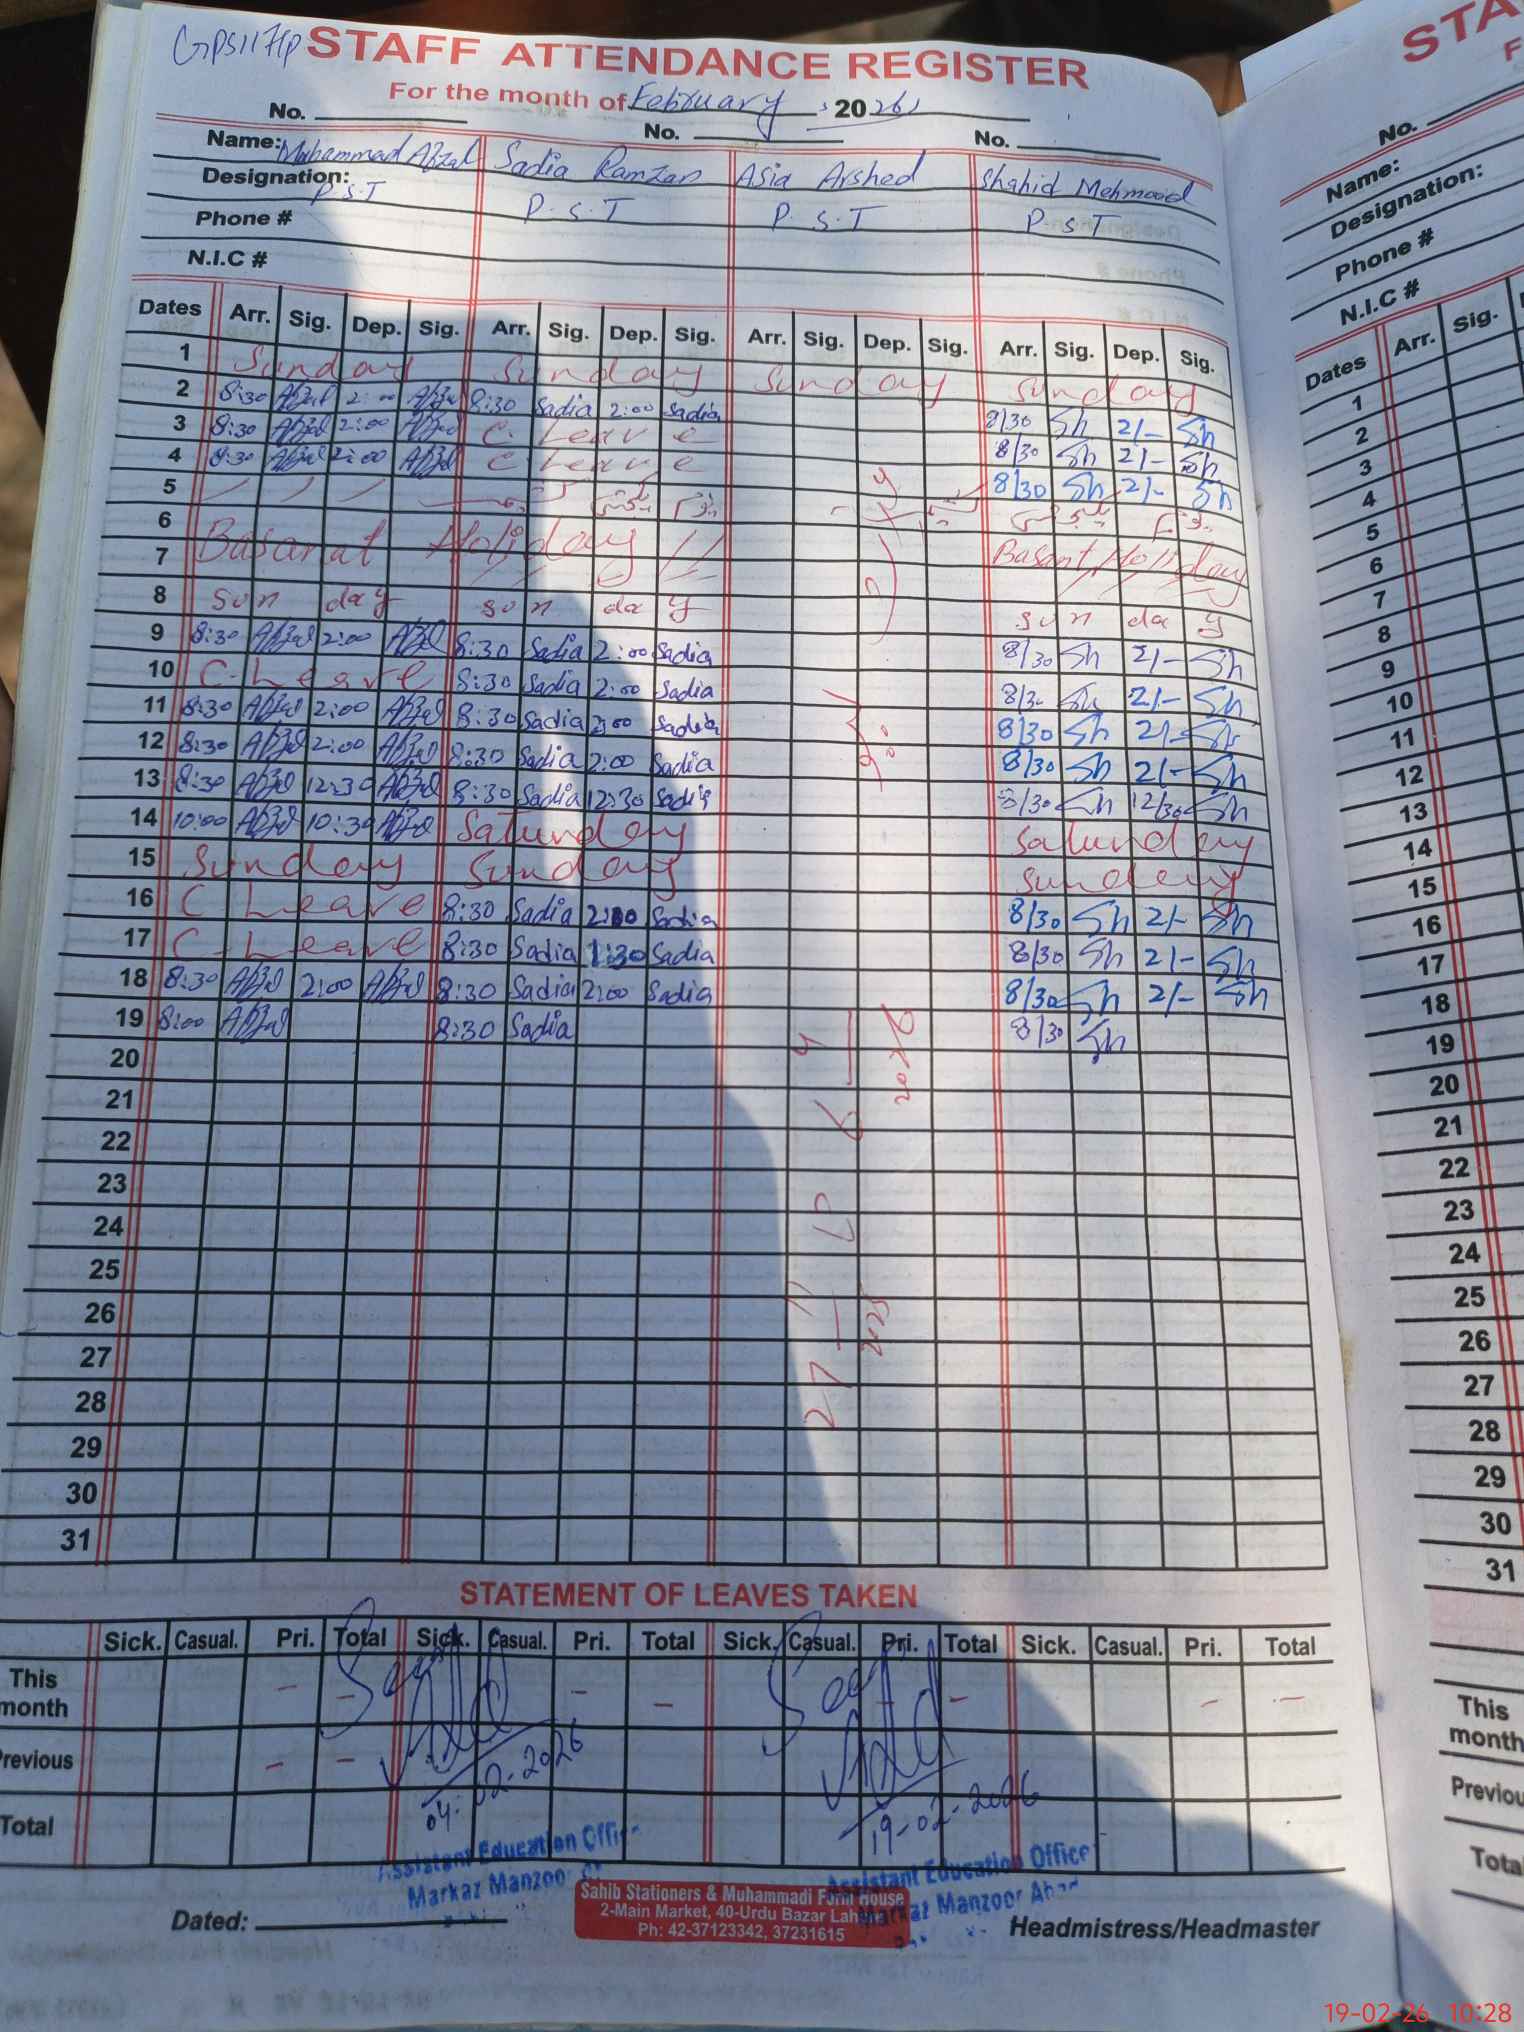 STAFF ATTENDANCE REGISTER
For the month of February 2026
No. No. No.
Name: Muhammad Afzal Sadia Ramzan Asia Arshed Shahid Mehmood
Designation: P.S.T P.S.T P.S.T P.S.T
Phone #
N.I.C #
Dates Arr. Sig. Dep. Sig. Arr. Sig. Dep. Sig. Arr. Sig. Dep. Sig. Arr. Sig. Dep. Sig.
1 Sunday Sunday Sunday Sunday
2 8:30 Afzal 2:00 Afzal 8:30 Sadia 2:00 Sadia 8/30 Sh 2/- Sh
3 8:30 Afzal 2:00 Afzal C. Leave 8/30 Sh 2/- Sh
4 8:30 Afzal 2:00 Afzal C Leave 8/30 Sh 2/- Sh
5
6 Basanat Holiday // Basant Holiday
7
8 Sunday Sunday Sunday
9 8:30 Afzal 2:00 Afzal 8:30 Sadia 2:00 Sadia 8/30 Sh 2/- Sh
10 C. Leave 8:30 Sadia 2:00 Sadia 8/30 Sh 2/- Sh
11 8:30 Afzal 2:00 Afzal 8:30 Sadia 2:00 Sadia 8/30 Sh 2/- Sh
12 8:30 Afzal 2:00 Afzal 8:30 Sadia 2:00 Sadia 8/30 Sh 2/- Sh
13 8:30 Afzal 12:30 Afzal 8:30 Sadia 12:30 Sadia 8/30 Sh 12/30 Sh
14 10:00 Afzal 10:30 Afzal Saturday Saturday
15 Sunday Sunday Sunday
16 C Leave 8:30 Sadia 2:00 Sadia 8/30 Sh 2/- Sh
17 C. Leave 8:30 Sadia 1:30 Sadia 8/30 Sh 2/- Sh
18 8:30 Afzal 2:00 Afzal 8:30 Sadia 2:00 Sadia 8/30 Sh 2/- Sh
19 8:00 Afzal 8:30 Sadia 8/30 Sh
20
21
22
23
24
25
26
27
28
29
30
31
27-11 2025
2026
STATEMENT OF LEAVES TAKEN
Sick. Casual. Pri. Total Sick. Casual. Pri. Total Sick. Casual. Pri. Total Sick. Casual. Pri. Total
This month - - - - - - -
Previous - -
Total
Seen Seen
04-02-2026 19-02-2026
Assistant Education Office
Markaz Manzoor
Assistant Education Office
Markaz Manzoor Abad
Sahib Stationers & Muhammadi Form House
2-Main Market, 40-Urdu Bazar Lahore
Ph: 42-37123342, 37231615
Dated: Headmistress/Headmaster
STA
No.
Name:
Designation:
Phone #
N.I.C #
Dates Arr. Sig.
1
2
3
4
5
6
7
8
9
10
11
12
13
14
15
16
17
18
19
20
21
22
23
24
25
26
27
28
29
30
31
This month
Previou
Tota
19-02-26 10:28